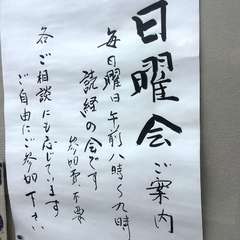 日曜会ご案内
毎日曜日午前八時〜九時
読経の会です
参加費不要
各ご相談にも応じています
ご自由にご参加下さい